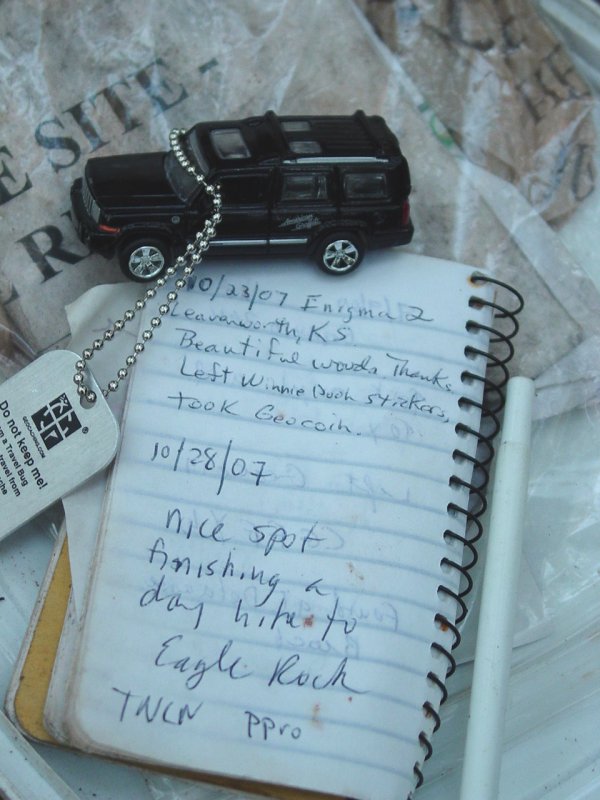 E SITE -
E R
10/23/07 Enigma 2
Leavenworth, KS
Beautiful woods Thanks
Left Winnie Pooh stickers,
took Geocoin.
10/28/07
nice spot
finishing a
day hike to
Eagle Rock
TNLN ppro
GEOCACHING.COM
Do not keep me!
a Travel Bug
travel from